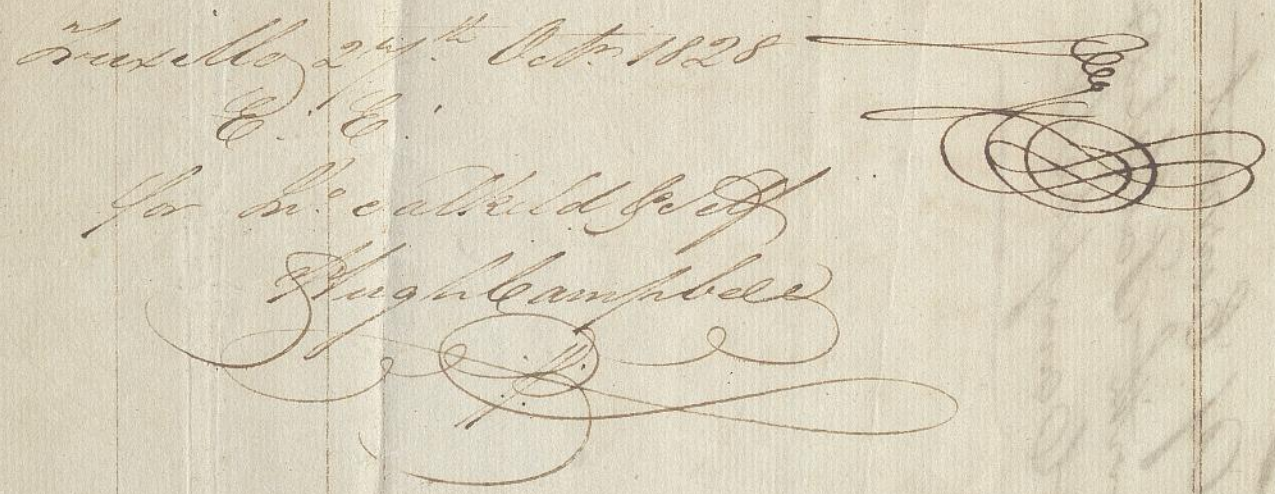 Truxillo 27th Octr 1828
E. E.
for Mr Salkeld & Self
Hugh Campbell